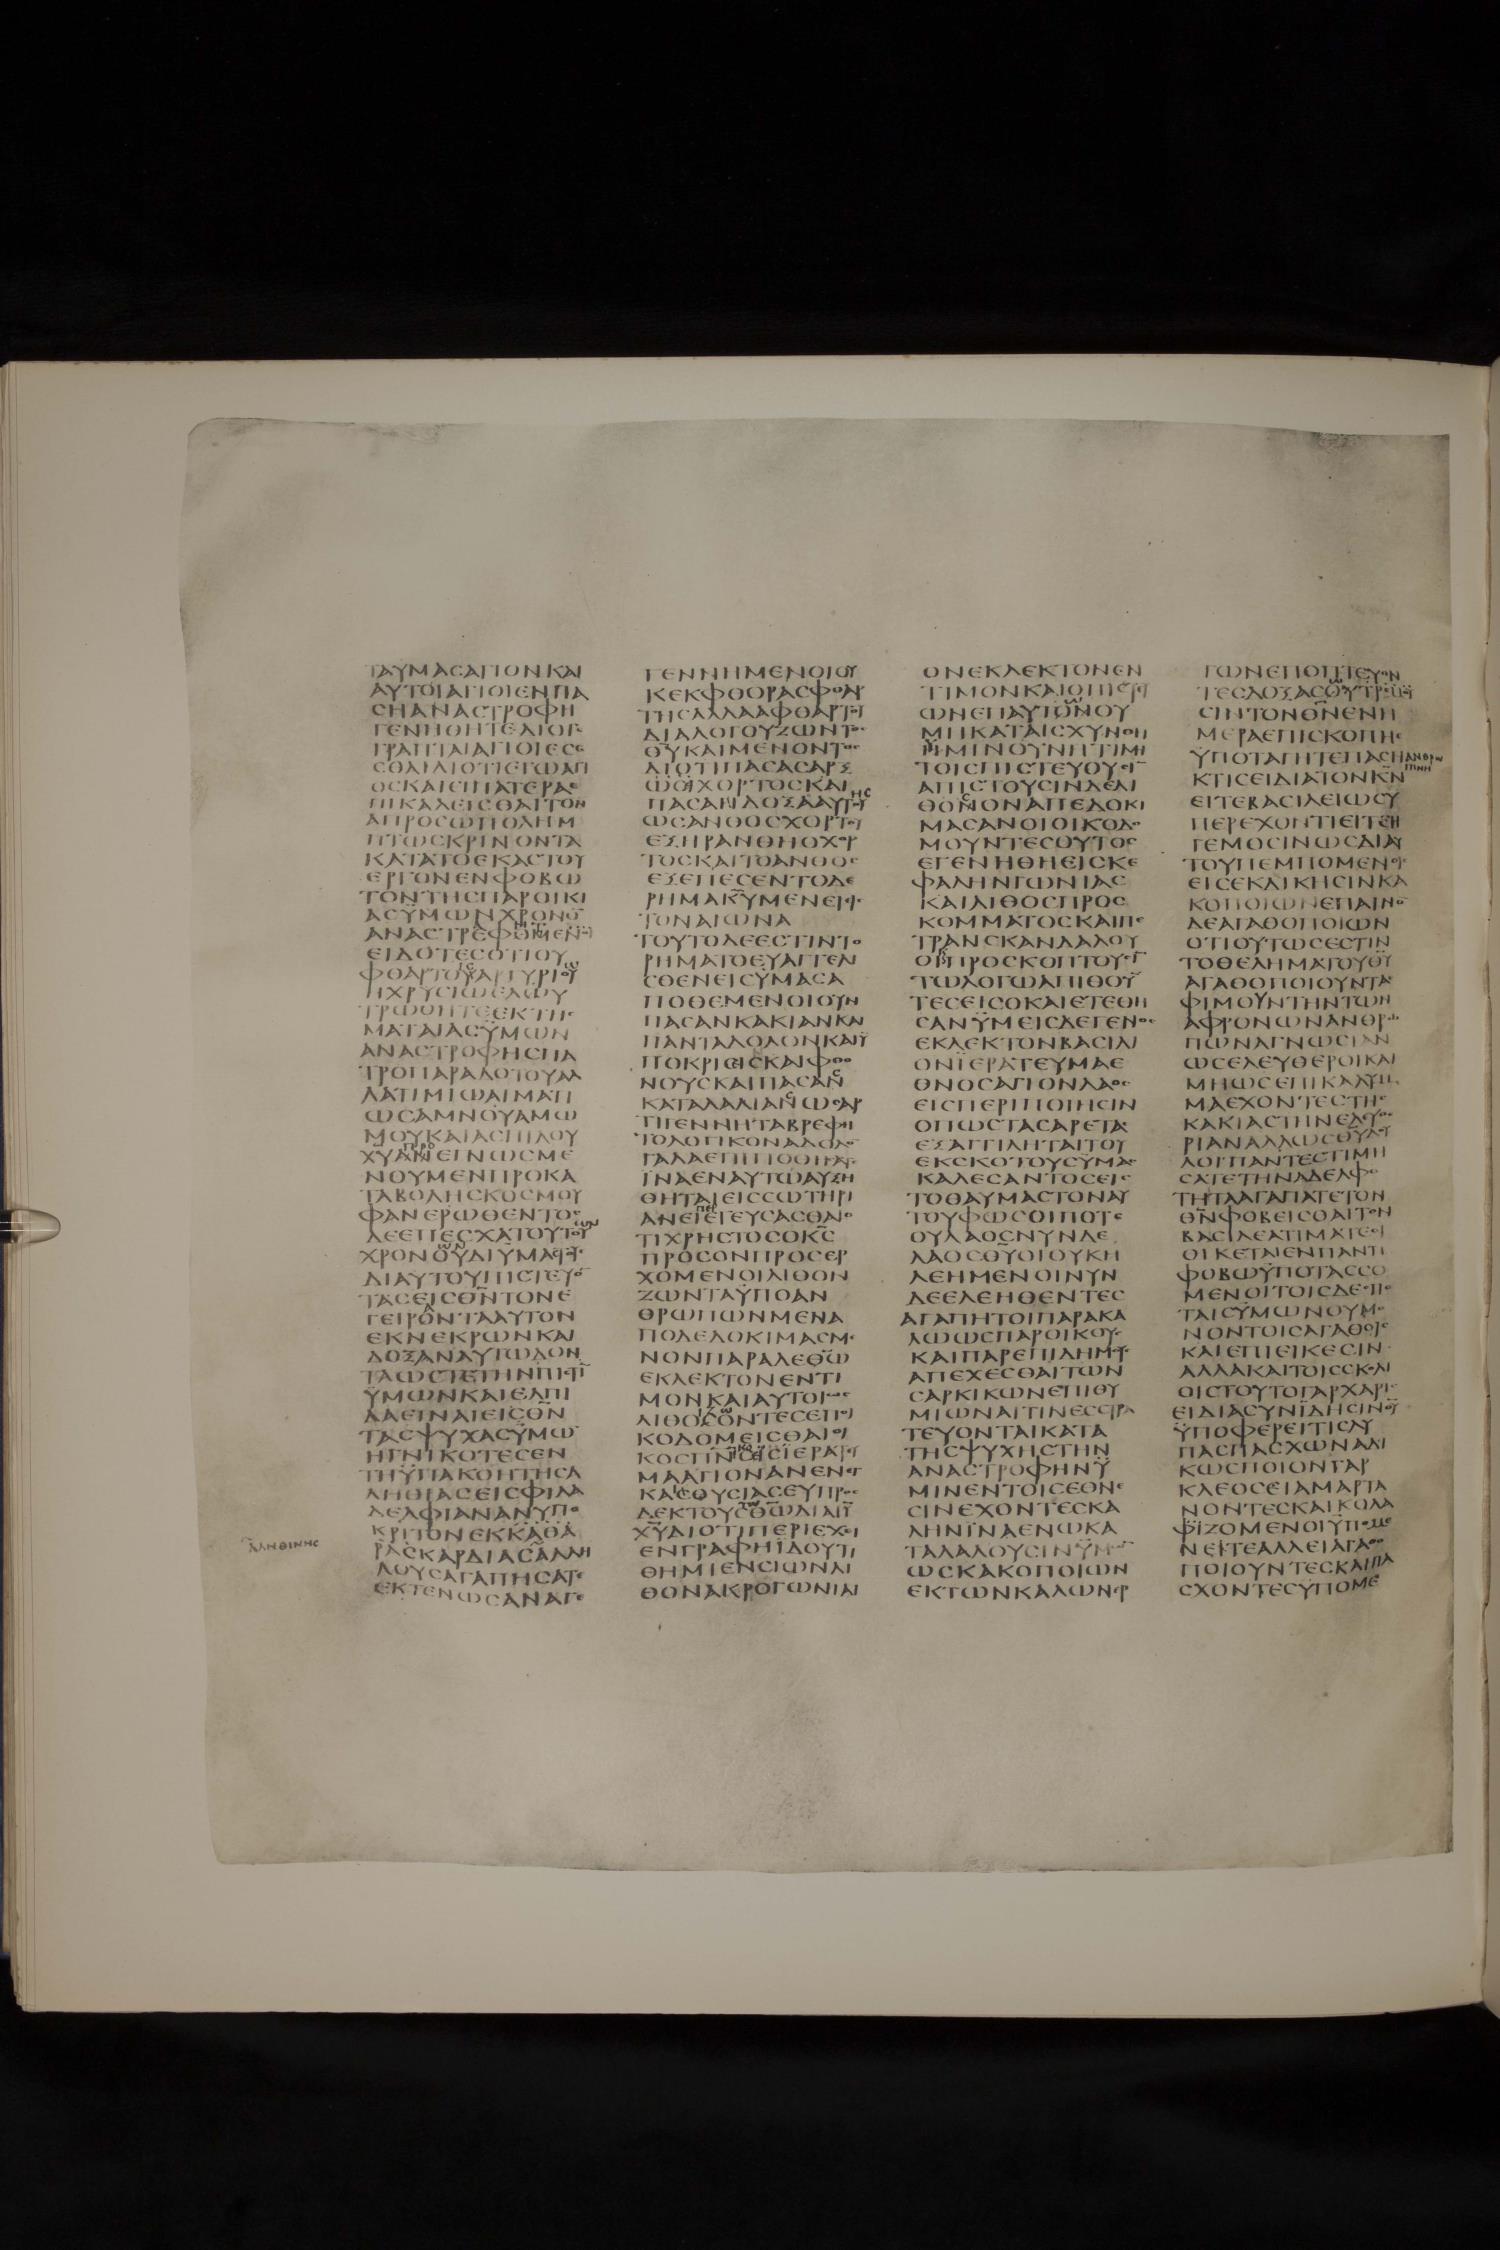 ΤΑΥΜΑϹΑΓΙΟΝΚΑΙ
ΑΥΤΟΙΑΓΙΟΙΕΝΠΑ
ϹΗΑΝΑϹΤΡΟΦΗ
ΓΕΝΗΘΗΤΕΔΙΟΓΕ
ΓΡΑΠΤΑΙΑΓΙΟΙΕϹΕ
ϹΘΑΙΔΙΟΤΙΕΓΩΑΓΙ
ΟϹΚΑΙΕΙΠΑΤΕΡΑ
ΠΙΚΑΛΕΙϹΘΑΙΤΟΝ
ΑΠΡΟϹΩΠΟΛΗΜ
ΠΤΩϹΚΡΙΝΟΝΤΑ
ΚΑΤΑΤΟΕΚΑϹΤΟΥ
ΕΡΓΟΝΕΝΦΟΒΩ
ΤΟΝΤΗϹΠΑΡΟΙΚΙ
ΑϹΫΜΩΝΧΡΟΝΟ̅
ΑΝΑϹΤΡΕΦΟΜΕΝΟΙ
ΕΙΔΟΤΕϹΟΤΙΟΥ
ΦΘΑΡΤΟΥΑΡΓΥΡΙΟΥ
ΗΧΡΥϹΙΩΕΛΩΥ
ΤΡΩΘΗΤΕΕΚΤΗϹ
ΜΑΤΑΙΑϹΫΜΩΝ
ΑΝΑϹΤΡΟΦΗϹΠΑ
ΤΡΟΠΑΡΑΔΟΤΟΥΑΛ
ΛΑΤΙΜΙΩΑΙΜΑΤΙ
ΩϹΑΜΝΟΥΑΜΩ
ΜΟΥΚΑΙΑϹΠΙΛΟΥ
ΝΟΥΜΕΝΠΡΟΚΑ
ΤΑΒΟΛΗϹΚΟϹΜΟΥ
ΦΑΝΕΡΩΘΕΝΤΟϹ
ΔΕΕΠΕϹΧΑΤΟΥΤΟΥ
ΔΙΑΥΤΟΥΠΙϹΤΕΥΟ̅
ΤΑϹΕΙϹΘ̅Ν̅ΤΟΝΕ
ΓΕΙΡΟΝΤΑΑΥΤΟΝ
ΕΚΝΕΚΡΩΝΚΑΙ
ΔΟΞΑΝΑΥΤΩΔΟΝ
ΤΑΩϹΤΕΤΗΝΠΙϹΤΙ̅
ΫΜΩΝΚΑΙΕΛΠΙ
ΔΑΕΙΝΑΙΕΙϹΘ̅Ν̅
ΤΑϹΨΥΧΑϹΫΜΩ̅
ΗΓΝΙΚΟΤΕϹΕΝ
ΤΗΫΠΑΚΟΗΤΗϹΑ
ΛΗΘΙΑϹΕΙϹΦΙΛΑ
ΔΕΛΦΙΑΝΑΝΥΠΟ
ΚΡΙΤΟΝΕΚΚΑΘΑ
ΑΛΗΘΙΝΗϹ
ΡΑϹΚΑΡΔΙΑϹΑΛΛΗ
ΛΟΥϹΑΓΑΠΗϹΑΤΕ
ΕΚΤΕΝΩϹΑΝΑΓΕ
ΓΕΝΝΗΜΕΝΟΙΟΥ
ΚΕΚΦΘΟΡΑϹΦΘΑΡ
ΤΗϹΑΛΛΑΑΦΘΑΡΤΟΥ
ΔΙΑΛΟΓΟΥΖΩΝΤΟϹ
Θ̅Υ̅ΚΑΙΜΕΝΟΝΤΟϹ
ΔΙΟΤΙΠΑϹΑϹΑΡΞ
ΩϹΙΧΟΡΤΟϹΚΑΙ
ΠΑϹΑΗΔΟΞΑΑΥΤΟΥ
ΩϹΑΝΘΟϹΧΟΡΤΟΥ
ΕΞΗΡΑΝΘΗΟΧΟΡ
ΤΟϹΚΑΙΤΟΑΝΘΟϹ
ΕΞΕΠΕϹΕΝΤΟΔΕ
ΡΗΜΑΚ̅Υ̅ΜΕΝΕΙΕΙϹ
ΤΟΝΑΙΩΝΑ
ΤΟΥΤΟΔΕΕϹΤΙΝΤΟ
ΡΗΜΑΤΟΕΥΑΓΓΕΛΙ
ϹΘΕΝΕΙϹΫΜΑϹΑ
ΠΟΘΕΜΕΝΟΙΟΥΝ
ΠΑϹΑΝΚΑΚΙΑΝΚΑΙ
ΠΑΝΤΑΔΟΛΟΝΚΑΙΫ
ΠΟΚΡΙϹΙϹΚΑΙΦΘΟ
ΝΟΥϹΚΑΙΠΑϹΑΝ
ΚΑΤΑΛΑΛΙΑΝΩϹΑΡ
ΤΙΓΕΝΝΗΤΑΒΡΕΦΗ
ΤΟΛΟΓΙΚΟΝΑΔΟΛΟ̅
ΓΑΛΑΕΠΙΠΟΘΗϹΑΤΕ
ΙΝΑΕΝΑΥΤΩΑΥΞΗ
ΘΗΤΑΙΕΙϹϹΩΤΗΡΙ
ΑΝΕΙΕΓΕΥϹΑϹΘΑΙΟ
ΤΙΧΡΗϹΤΟϹΟΚ̅Ϲ̅
ΠΡΟϹΟΝΠΡΟϹΕΡ
ΧΟΜΕΝΟΙΛΙΘΟΝ
ΖΩΝΤΑΫΠΟΑΝ
ΘΡΩΠΩΝΜΕΝΑ
ΠΟΔΕΔΟΚΙΜΑϹΜΕ
ΝΟΝΠΑΡΑΔΕΘ̅Ω̅
ΕΚΛΕΚΤΟΝΕΝΤΙ
ΜΟΝΚΑΙΑΥΤΟΙΩϹ
ΛΙΘΟΙΖΩΝΤΕϹΕΠΟΙ
ΚΟΔΟΜΕΙϹΘΑΙΟΙ
ΜΑΑΓΙΟΝΑΝΕΝΕΓ
ΚΑΙΘΥϹΙΑϹΕΥΠΡΟϹ
ΔΕΚΤΟΥϹΘ̅Ω̅ΔΙΑΙ̅Υ̅
Χ̅Υ̅ΔΙΟΤΙΠΕΡΙΕΧΕΙ
ΕΝΓΡΑΦΗΪΔΟΥΤΙ
ΘΗΜΙΕΝϹΙΩΝΛΙ
ΘΟΝΑΚΡΟΓΩΝΙΑΙ
ΟΝΕΚΛΕΚΤΟΝΕΝ
ΤΙΜΟΝΚΑΙΟΠΙϹΤΕΥ
ΩΝΕΠΑΥΤΩΝΟΥ
ΜΗΚΑΤΑΙϹΧΥΝΘΗ
ΤΟΙϹΠΙϹΤΕΥΟΥϹΙ̅
ΑΠΙϹΤΟΥϹΙΝΔΕΛΙ
ΘΟΝΟΝΑΠΕΔΟΚΙ
ΜΑϹΑΝΟΙΟΙΚΟΔΟ
ΜΟΥΝΤΕϹΟΥΤΟϹ
ΕΓΕΝΗΘΗΕΙϹΚΕ
ΦΑΛΗΝΓΩΝΙΑϹ
ΚΑΙΛΙΘΟϹΠΡΟϹ
ΚΟΜΜΑΤΟϹΚΑΙΠΕ
ΤΡΑΝϹΚΑΝΔΑΛΟΥ
ΟΙΠΡΟϹΚΟΠΤΟΥϹΙ̅
ΤΩΛΟΓΩΑΠΙΘΟΥ̅
ΤΕϹΕΙϹΟΚΑΙΕΤΕΘΗ
ϹΑΝΫΜΕΙϹΔΕΓΕΝΟϹ
ΕΚΛΕΚΤΟΝΒΑϹΙΛΙ
ΟΝΪΕΡΑΤΕΥΜΑΕ
ΘΝΟϹΑΓΙΟΝΛΑΟϹ
ΕΙϹΠΕΡΙΠΟΙΗϹΙΝ
ΟΠΩϹΤΑϹΑΡΕΤΑϹ
ΕΞΑΓΓΙΛΗΤΑΙΤΟΥ
ΕΚϹΚΟΤΟΥϹΫΜΑϹ
ΚΑΛΕϹΑΝΤΟϹΕΙϹ
ΤΟΘΑΥΜΑϹΤΟΝΑΥ
ΤΟΥΦΩϹΟΙΠΟΤΕ
ΟΥΛΑΟϹΝΥΝΔΕ
ΛΑΟϹΘ̅Υ̅ΟΙΟΥΚΗ
ΛΕΗΜΕΝΟΙΝΥΝ
ΔΕΕΛΕΗΘΕΝΤΕϹ
ΑΓΑΠΗΤΟΙΠΑΡΑΚΑ
ΛΩΩϹΠΑΡΟΙΚΟΥϹ
ΚΑΙΠΑΡΕΠΙΔΗΜΟΥϹ
ΑΠΕΧΕϹΘΑΙΤΩΝ
ϹΑΡΚΙΚΩΝΕΠΙΘΥ
ΜΙΩΝΑΙΤΙΝΕϹϹΤΡΑ
ΤΕΥΟΝΤΑΙΚΑΤΑ
ΤΗϹΨΥΧΗϹΤΗΝ
ΑΝΑϹΤΡΟΦΗΝΫ
ΜΙΝΕΝΤΟΙϹΕΘΝΕ
ϹΙΝΕΧΟΝΤΕϹΚΑ
ΛΗΝΪΝΑΕΝΩΚΑ
ΤΑΛΑΛΟΥϹΙΝΫΜΩ̅
ΩϹΚΑΚΟΠΟΙΩΝ
ΕΚΤΩΝΚΑΛΩΝΕΡ
ΓΩΝΕΠΟΠΤΕΥΟΝ
ϹΙΝΤΟΝΘ̅Ν̅ΕΝΗ
ΜΕΡΑΕΠΙϹΚΟΠΗϹ
ΫΠΟΤΑΓΗΤΕΠΑϹΗΑΝΘΡΩ
ΠΙΝΗ
ΚΤΙϹΕΙΔΙΑΤΟΝΚ̅Ν̅
ΕΙΤΕΒΑϹΙΛΕΙΩϹΥ
ΠΕΡΕΧΟΝΤΙΕΙΤΕΗ
ΓΕΜΟϹΙΝΩϹΔΙΑΥ
ΤΟΥΠΕΜΠΟΜΕΝΟΙϹ
ΕΙϹΕΚΔΙΚΗϹΙΝΚΑ
ΚΟΠΟΙΩΝΕΠΑΙΝΟ̅
ΔΕΑΓΑΘΟΠΟΙΩΝ
ΟΤΙΟΥΤΩϹΕϹΤΙΝ
ΤΟΘΕΛΗΜΑΤΟΥΘ̅Υ̅
ΑΓΑΘΟΠΟΙΟΥΝΤΑϹ
ΦΙΜΟΥΝΤΗΝΤΩΝ
ΑΦΡΟΝΩΝΑΝΘΡΩ
ΠΩΝΑΓΝΩϹΙΑΝ
ΩϹΕΛΕΥΘΕΡΟΙΚΑΙ
ΜΗΩϹΕΠΙΚΑΛΥΜ
ΜΑΕΧΟΝΤΕϹΤΗϹ
ΚΑΚΙΑϹΤΗΝΕΛΕΥΘΕ
ΡΙΑΝΑΛΛΩϹΘ̅Υ̅ΔΟΥ
ΛΟΙΠΑΝΤΕϹΤΙΜΗ
ϹΑΤΕΤΗΝΑΔΕΛΦΟ
ΤΗΤΑΑΓΑΠΑΤΕΤΟΝ
Θ̅Ν̅ΦΟΒΕΙϹΘΑΙΤΟΝ
ΒΑϹΙΛΕΑΤΙΜΑΤΕΟΙ
ΟΙΚΕΤΑΙΕΝΠΑΝΤΙ
ΦΟΒΩΫΠΟΤΑϹϹΟ
ΜΕΝΟΙΤΟΙϹΔΕϹΠΟ
ΤΑΙϹΫΜΩΝΟΥΜΟ
ΝΟΝΤΟΙϹΑΓΑΘΟΙϹ
ΚΑΙΕΠΙΕΙΚΕϹΙΝ
ΑΛΛΑΚΑΙΤΟΙϹϹΚΟΛΙ
ΟΙϹΤΟΥΤΟΓΑΡΧΑΡΙϹ
ΕΙΔΙΑϹΥΝΪΔΗϹΙΝΘ̅Υ̅
ΫΠΟΦΕΡΕΙΤΙϹΛΥ
ΠΑϹΠΑϹΧΩΝΑΔΙ
ΚΩϹΠΟΙΟΝΓΑΡ
ΚΛΕΟϹΕΙΑΜΑΡΤΑ
ΝΟΝΤΕϹΚΑΙΚΟΛΑ
ΦΙΖΟΜΕΝΟΙΫΠΟΜΕ
ΝΕΙΤΕΑΛΛΕΙΑΓΑΘΟ
ΠΟΙΟΥΝΤΕϹΚΑΙΠΑ
ϹΧΟΝΤΕϹΥΠΟΜΕ